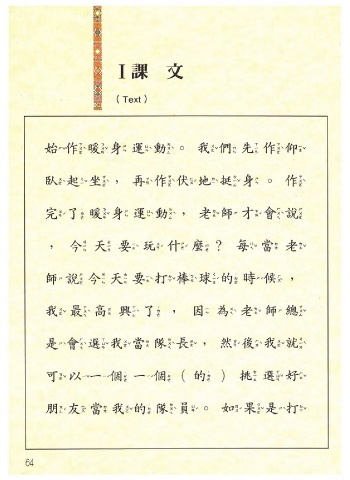 I 課 文
(Text)
始作暖身運動。我們先作仰
臥起坐，再作伏地挺身。作
完了暖身運動，老師才會說
，今天要玩什麼？每當老
師說今天要打棒球的時候，
我最高興了，因為老師總
是會選我當隊長，然後我就
可以一個一個(的)挑選好
朋友當我的隊員。如果是打
64